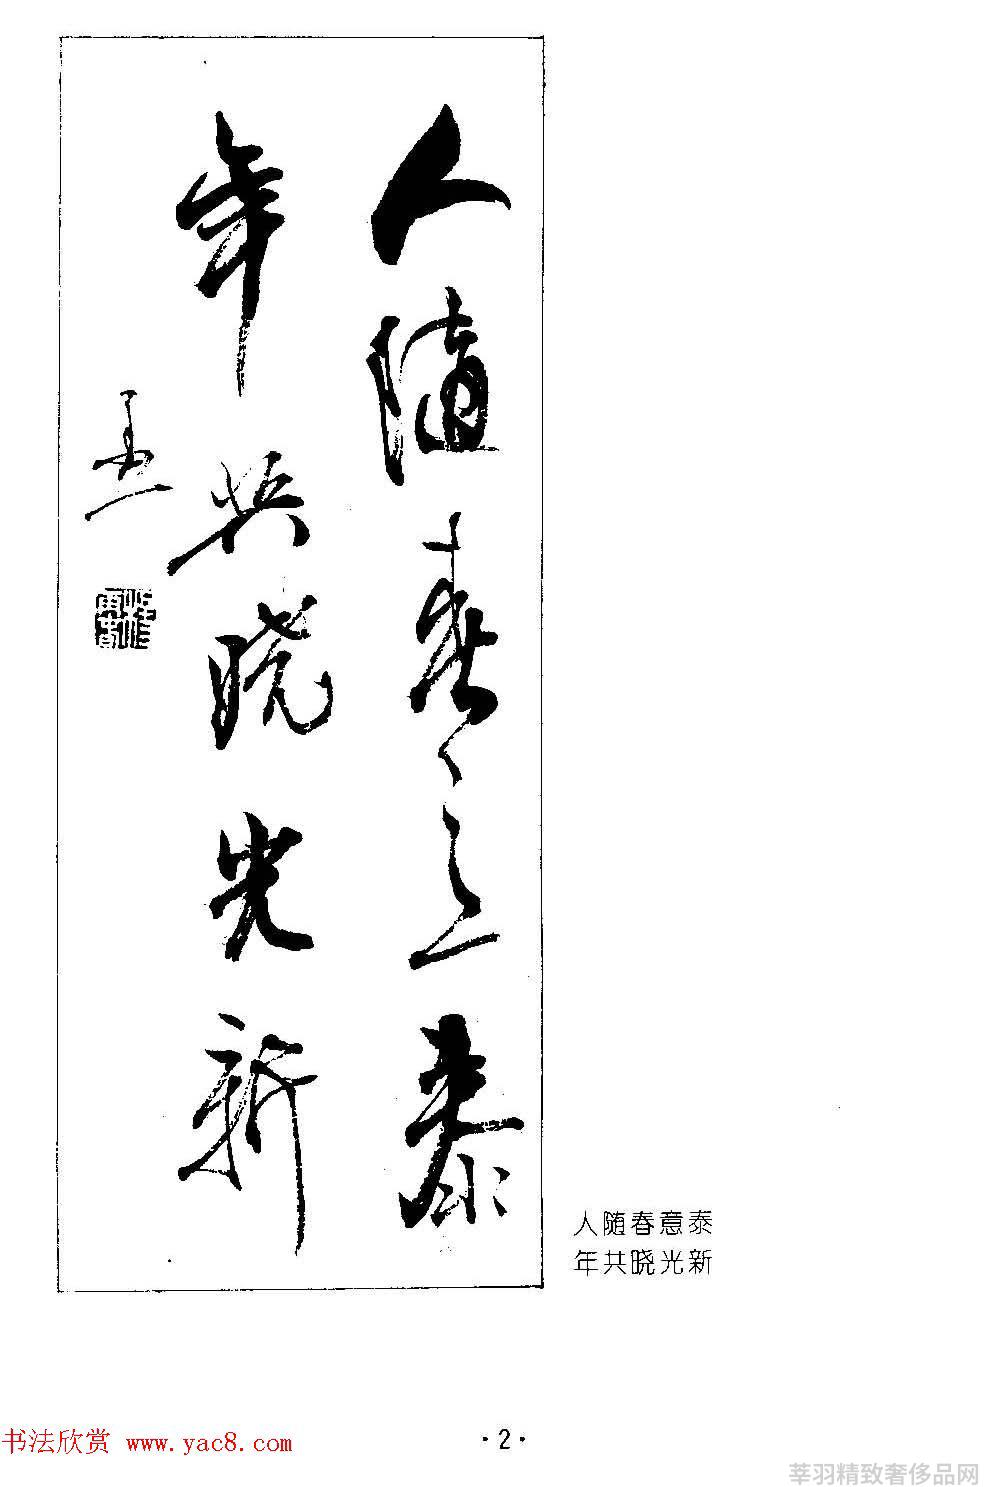 人随春意泰
年共晓光新
人随春意泰
年共晓光新
·2·
书法欣赏 www.yac8.com
莘羽精致奢侈品网